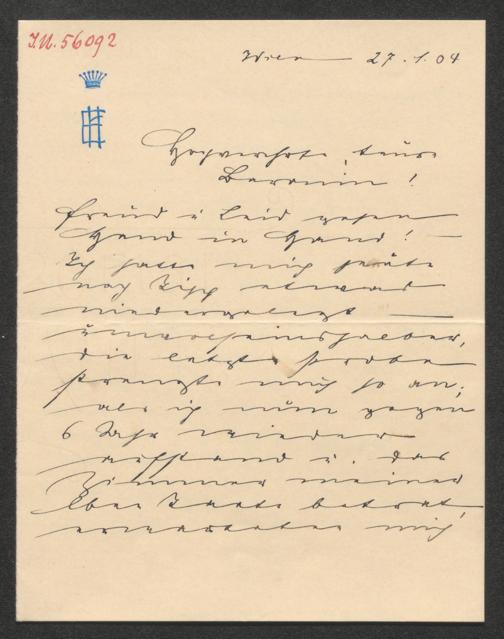 I.N. 56092
Wien 27.1.04
Hochverehrte, teure
Baronin!
Freud u Leid gehen
Hand in Hand! —
Ich hatte mich heute
nach Tisch etwas
niedergelegt —
unwohlseinshalber,
die letzte Probe
strengte mich so an;
als ich nun gegen
6 Uhr wieder
aufstand u. das
Zimmer meiner
lben Tante betrat,
erwarteten mich